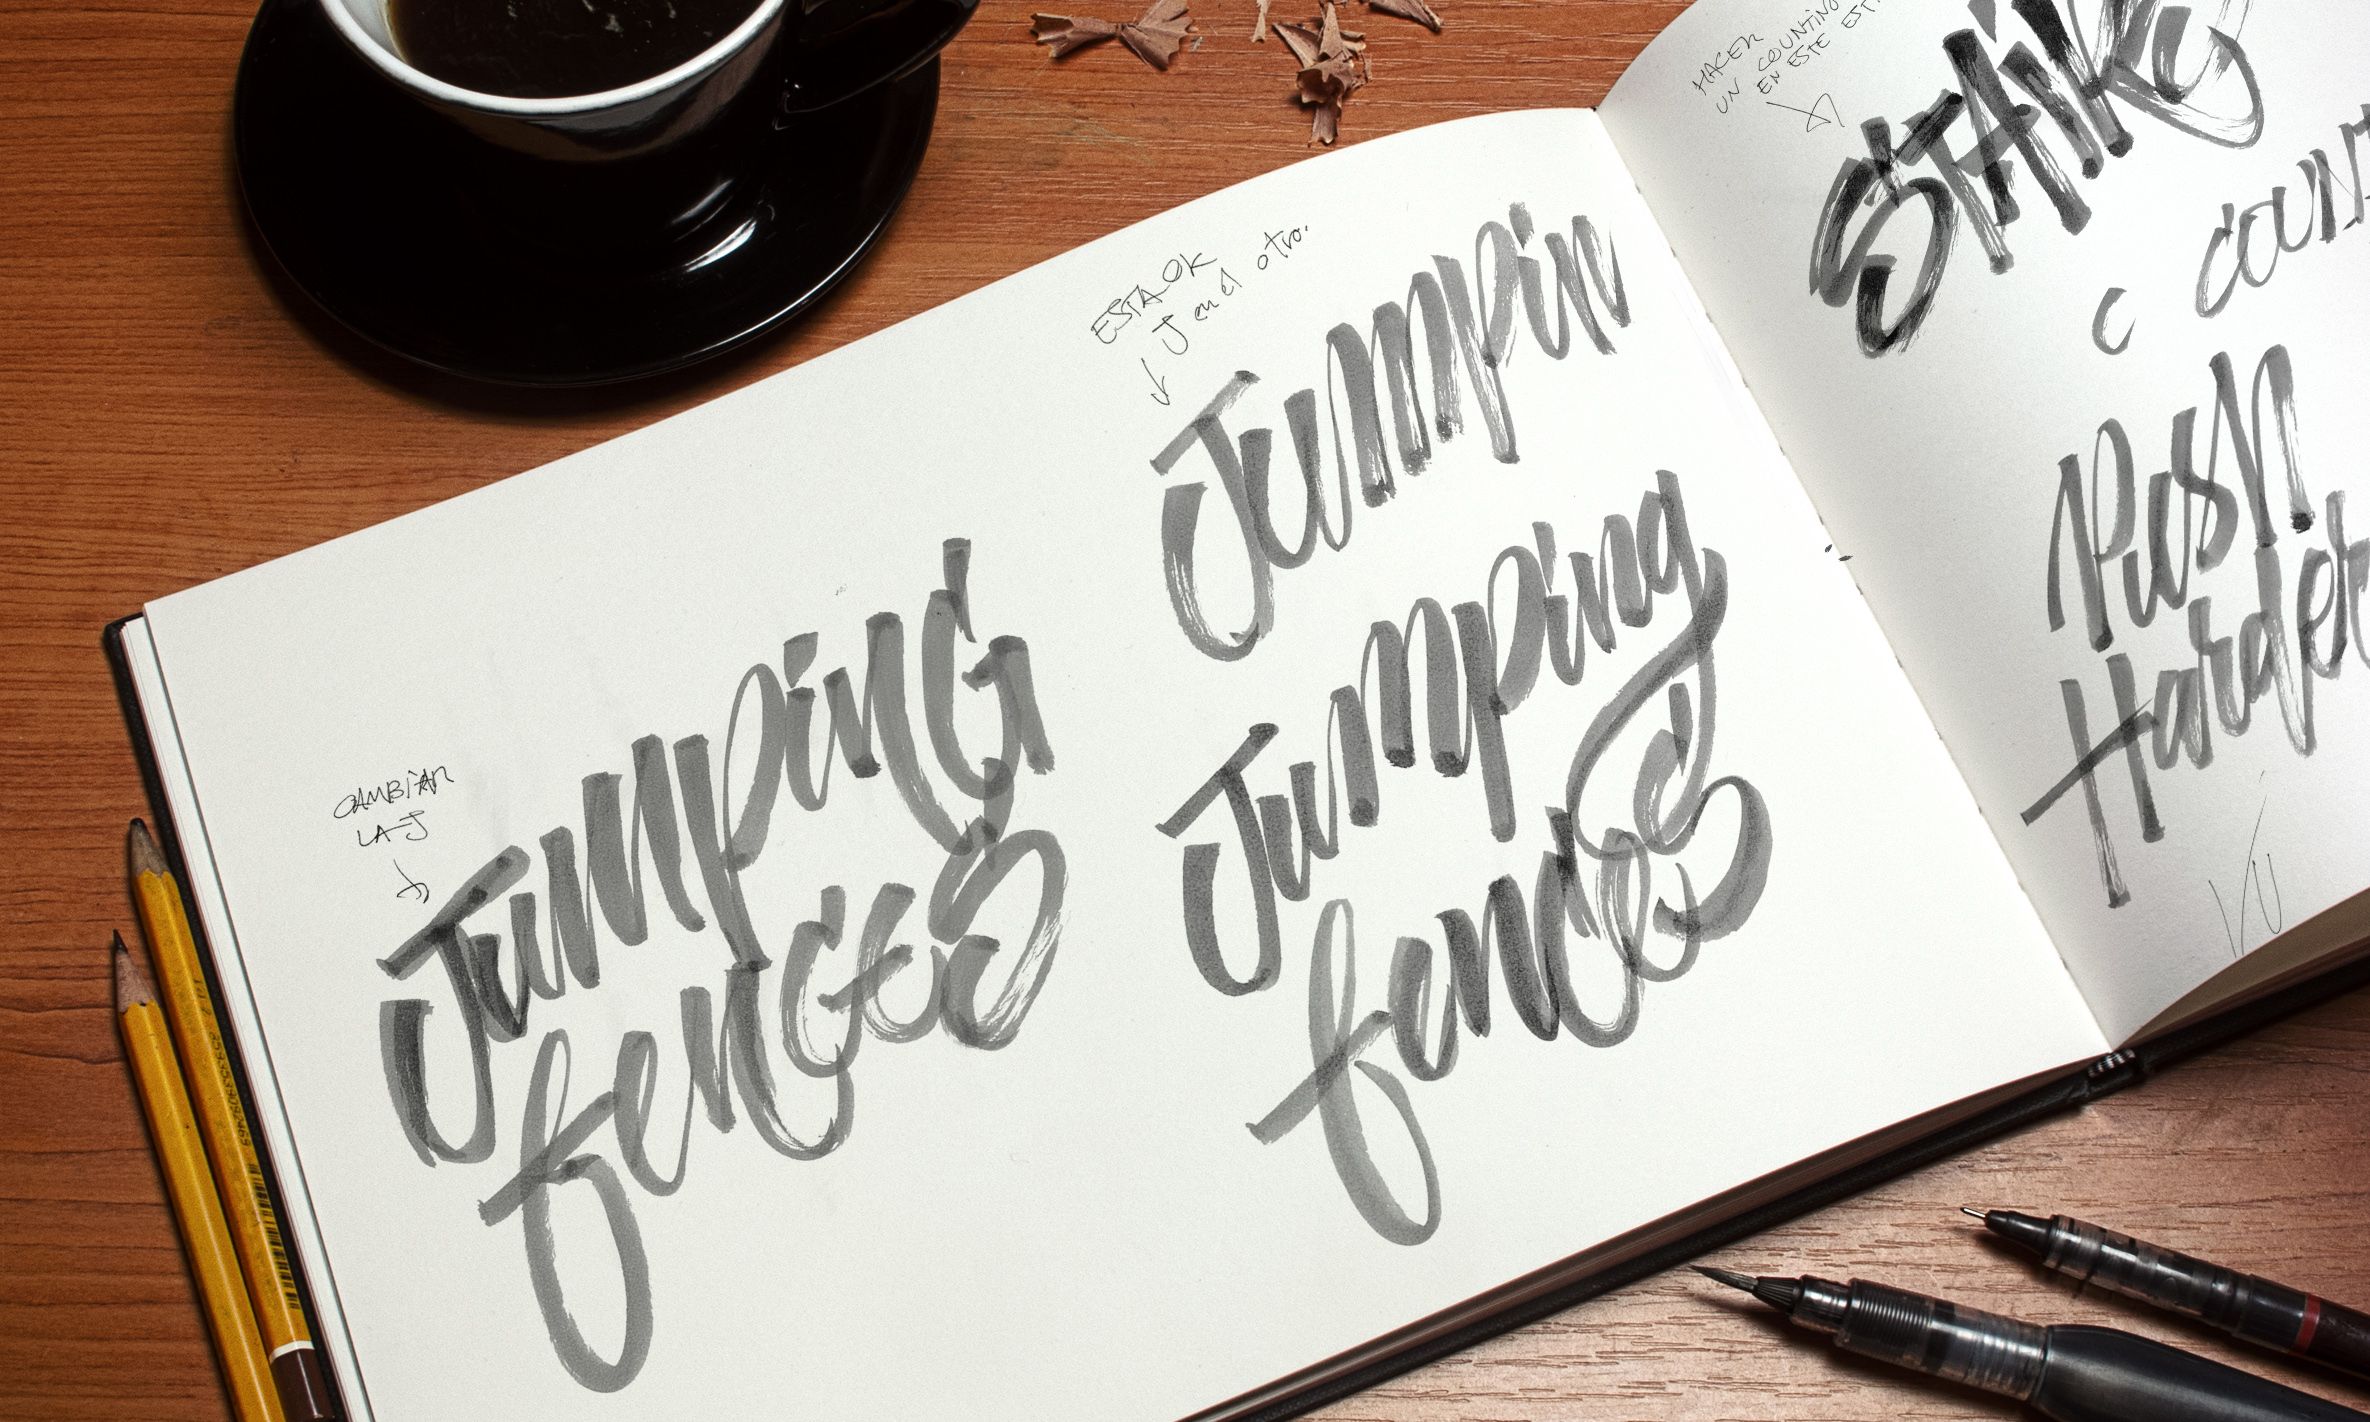 CAMBiAR
LA J
JumpinG
fences
ESTA OK
J en el otro.
Jumpin
Jumping
fences
HACER
UN COUNTING
EN ESTE
C
Push
Harder